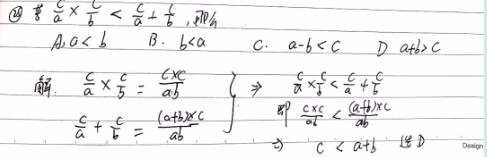 (24) 若 c/a × c/b < c/a + c/b , 那么
A. a < b  B. b < a  C. a-b < C  D a+b > C
解 c/a × c/b = c×c/ab
c/a + c/b = (a+b)×c/ab
⇒ c/a × c/b < c/a + c/b
即 c×c/ab < (a+b)×c/ab
⇒ c < a+b 选D
Design